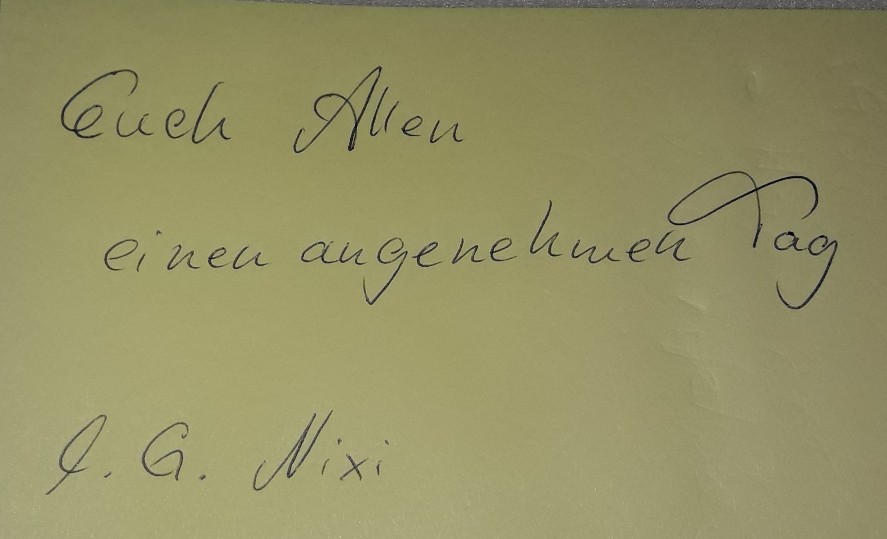 Euch Allen
einen angenehmen Tag
L. G. Nixi